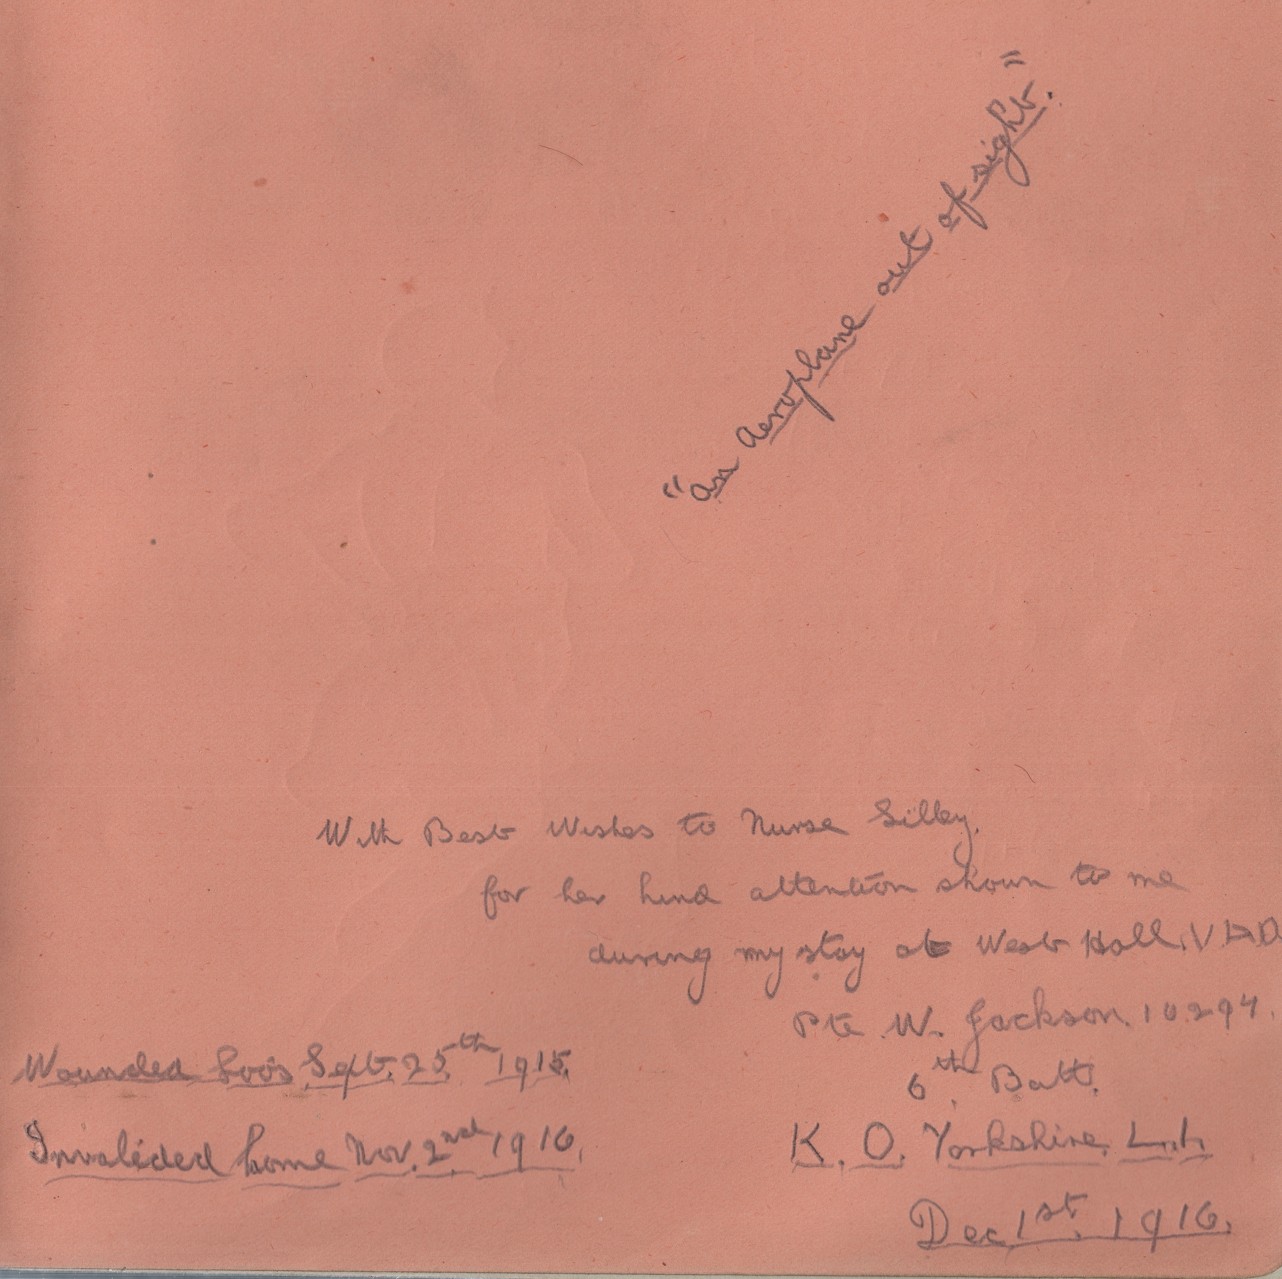 "an Aeroplane out of sight."
With Best Wishes to Nurse Silley.
for her kind attention shown to me
during my stay at West Hall. V.A.D
Pte W. Jackson. 10294.
6th Batt.
K. O. Yorkshire. L.I.
Dec 1st 1916.
Wounded Loos Sept. 25th 1915.
Invalided home Nov. 2nd 1916.